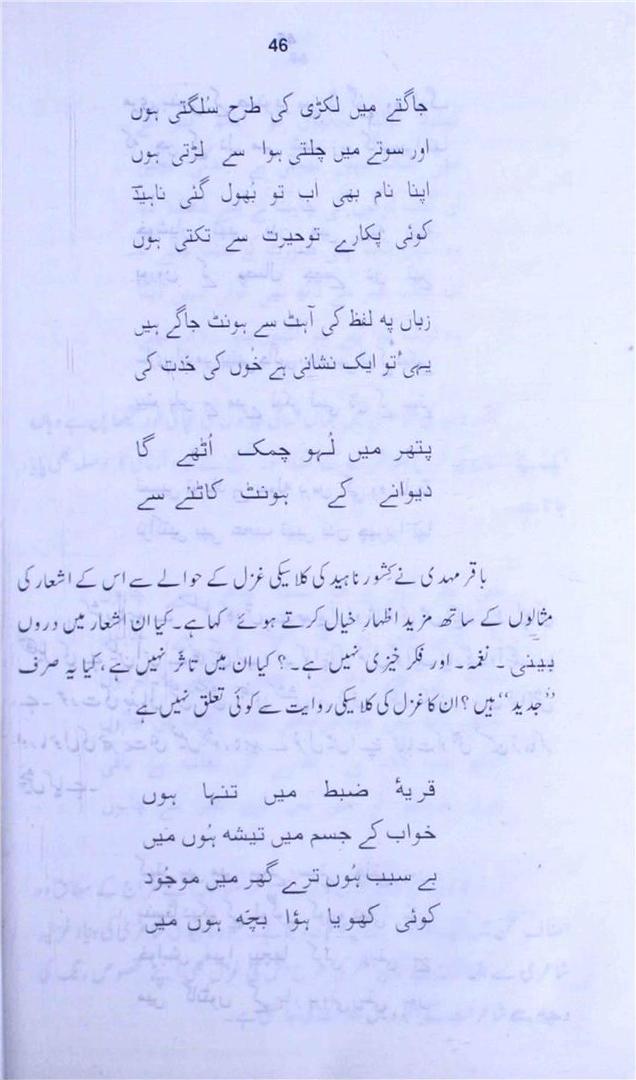 46
جاگتے میں لکڑی کی طرح سُلگتی ہوں
اور سوتے میں چلتی ہوا سے لڑتی ہوں
اپنا نام بھی اب تو بُھول گئی ناہید
کوئی پکارے توحیرت سے تکتی ہوں
زباں پہ لفظ کی آہٹ سے ہونٹ جاگے ہیں
یہی تو ایک نشانی ہے خُوں کی حدّت کی
پتھر میں لُہو چمک اُٹھے گا
دیوانے کے ہونٹ کاٹنے سے
باقر مہدی نے کِشور ناہید کی کلاسیکی غزل کے حوالے سے اس کے اشعار کی
مثالوں کے ساتھ مزید اظہار خیال کرتے ہوئے کہا ہے۔ کیا ان اشعار میں دروں
بینی۔ نغمہ۔ اور فکر خیزی نہیں ہے۔؟ کیا ان میں تاثر نہیں ہے، کیا یہ صرف
”جدید“ ہیں؟ ان کا غزل کی کلاسیکی روایت سے کوئی تعلق نہیں ہے
قریۂ ضبط میں تنہا ہوں
خواب کے جسم میں تیشہ ہُوں مَیں
بے سبب ہُوں ترے گھر میں موجُود
کوئی کھویا ہؤا بچّہ ہوں مَیں